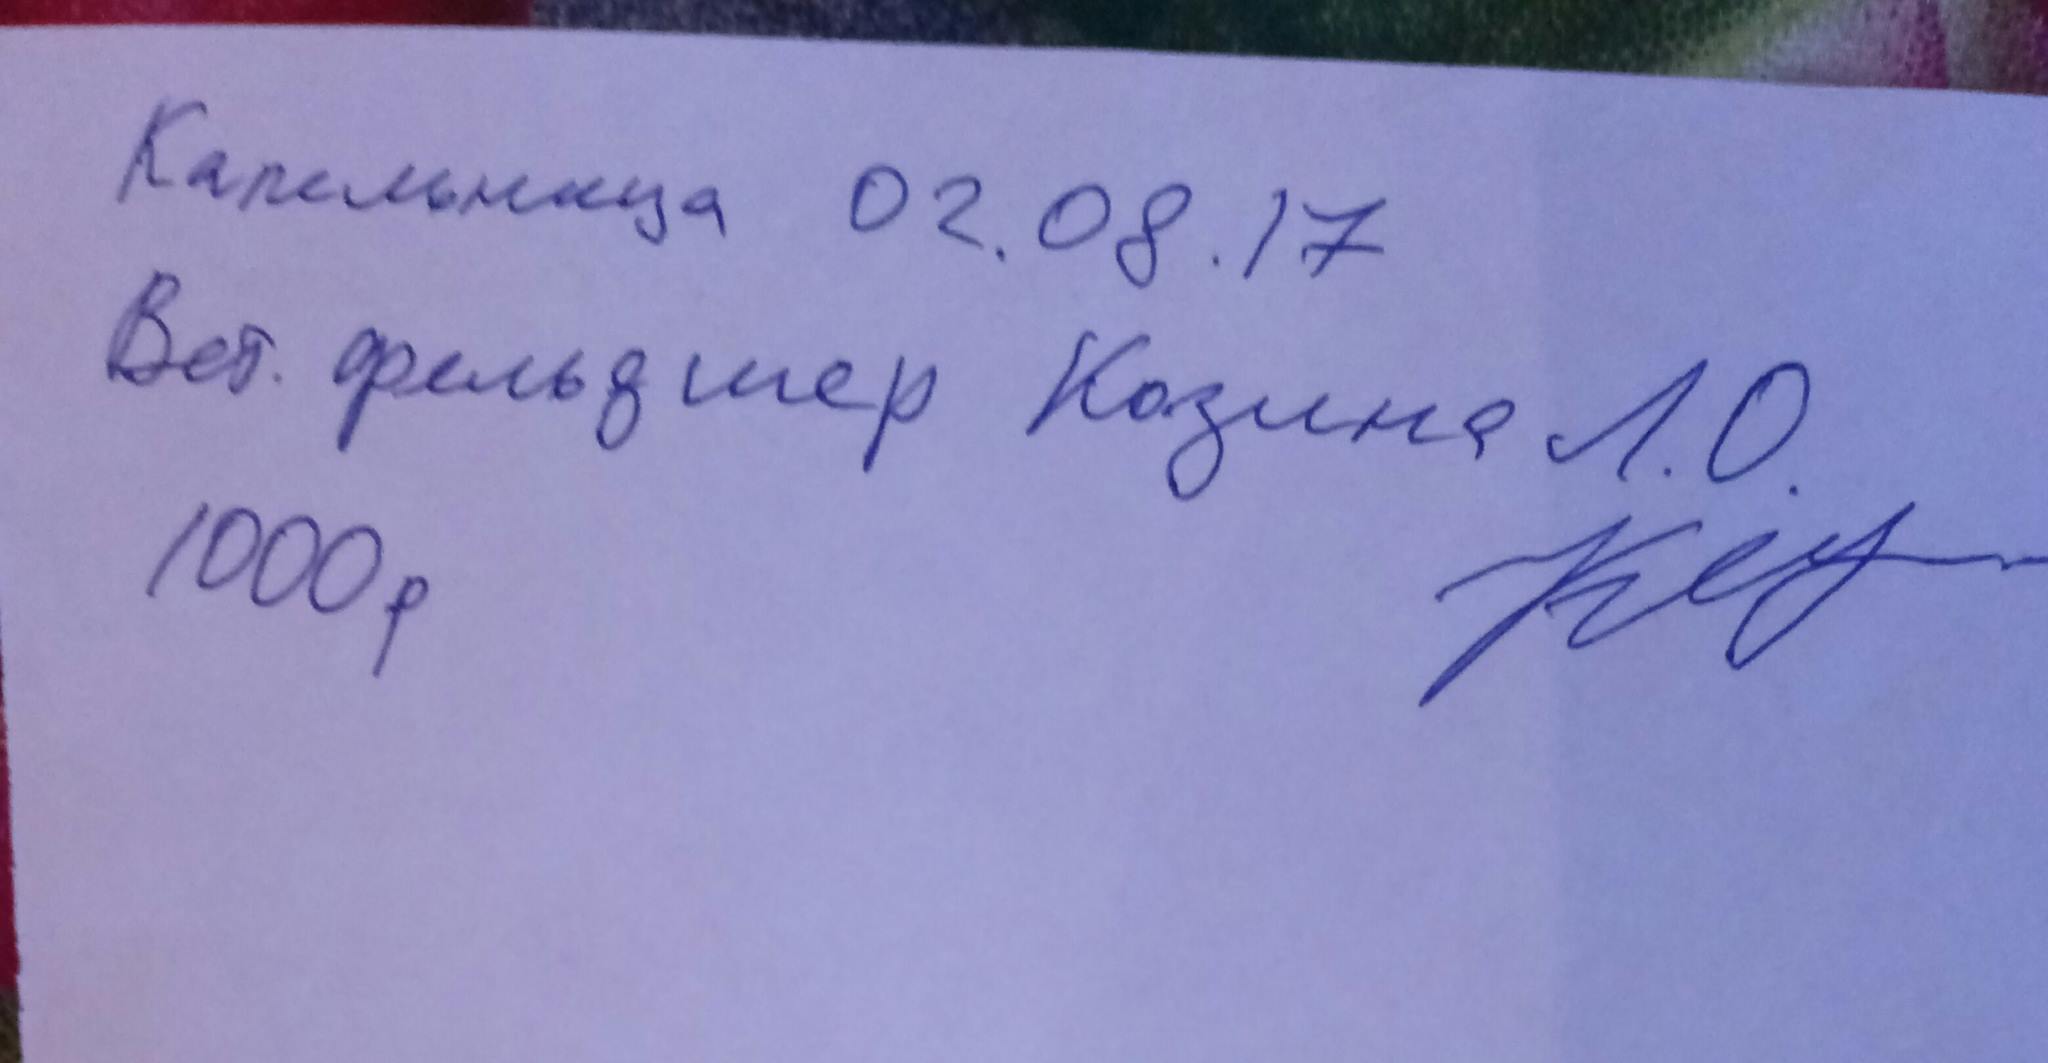 Капельница 02.08.17
Вет. фельдшер Козина Л.О.
1000р